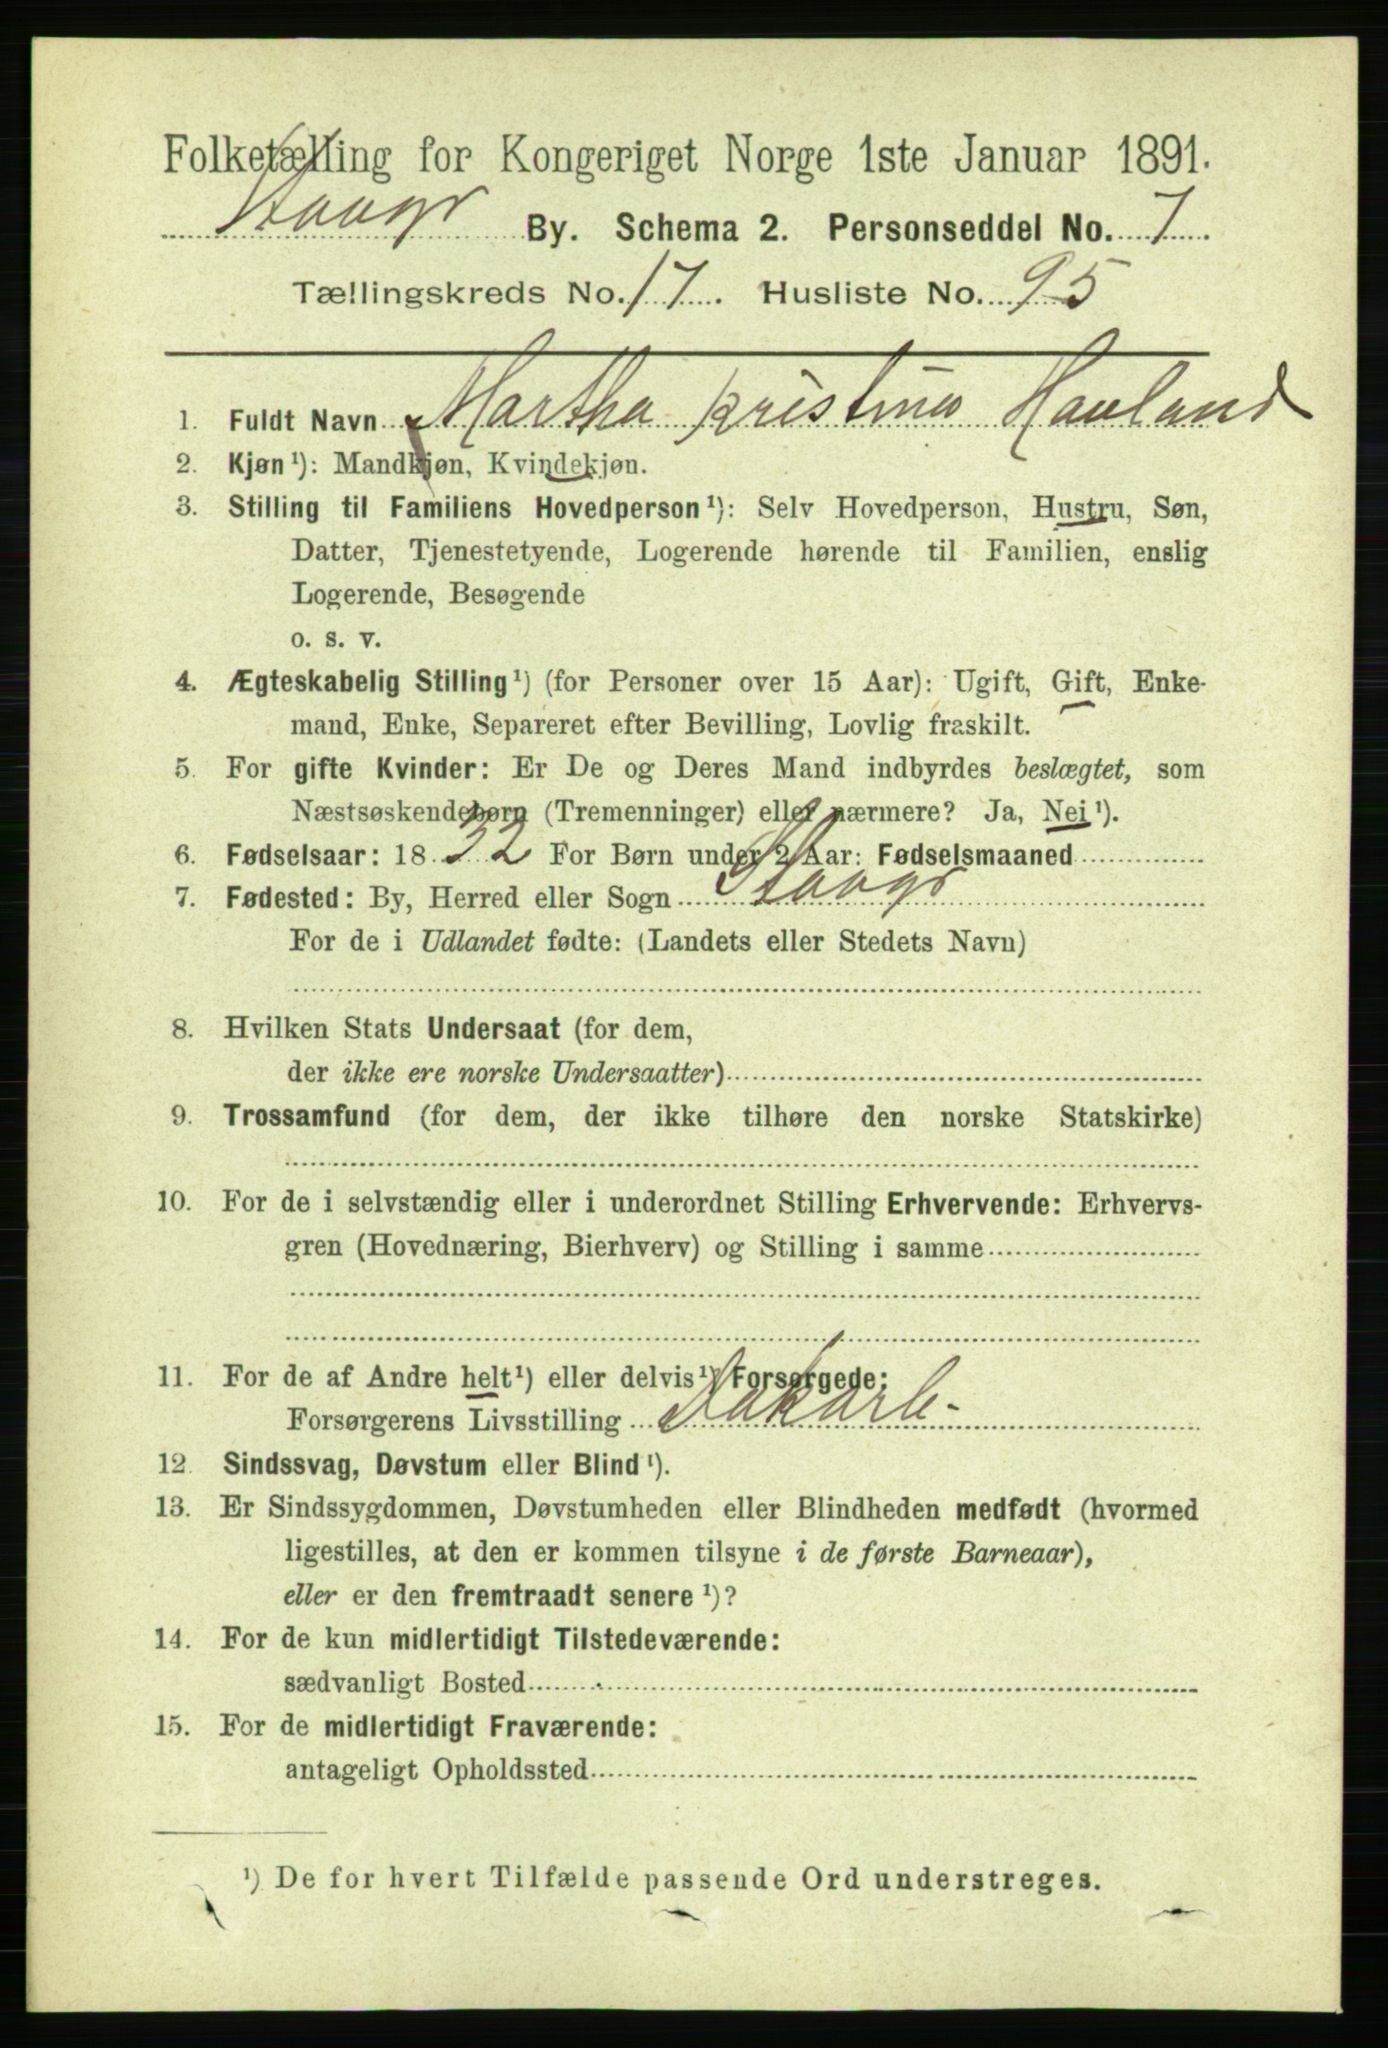 Folketælling for Kongeriget Norge 1ste Januar 1891.
By. Schema 2. Personseddel No. 7
Tællingskreds No. 17. Husliste No. 95
1. Fuldt Navn Martha Kristine Hauland
2. Kjøn ¹): Mandkjøn, Kvindekjøn.
3. Stilling til Familiens Hovedperson ¹): Selv Hovedperson, Hustru, Søn,
Datter, Tjenestetyende, Logerende hørende til Familien, enslig
Logerende, Besøgende
o. s. v.
4. Ægteskabelig Stilling ¹) (for Personer over 15 Aar): Ugift, Gift, Enke-
mand, Enke, Separeret efter Bevilling, Lovlig fraskilt.
5. For gifte Kvinder: Er De og Deres Mand indbyrdes beslægtet, som
Næstsøskendebørn (Tremenninger) eller nærmere? Ja, Nei ¹).
6. Fødselsaar: 1832 For Børn under 2 Aar: Fødselsmaaned
7. Fødested: By, Herred eller Sogn
For de i Udlandet fødte: (Landets eller Stedets Navn)
8. Hvilken Stats Undersaat (for dem,
der ikke ere norske Undersaatter)
9. Trossamfund (for dem, der ikke tilhøre den norske Statskirke)
10. For de i selvstændig eller i underordnet Stilling Erhvervende: Erhvervs-
gren (Hovednæring, Bierhverv) og Stilling i samme
11. For de af Andre helt ¹) eller delvis ¹) Forsørgede:
Forsørgerens Livsstilling
12. Sindssvag, Døvstum eller Blind ¹).
13. Er Sindssygdommen, Døvstumheden eller Blindheden medfødt (hvormed
ligestilles, at den er kommen tilsyne i de første Barneaar),
eller er den fremtraadt senere ¹)?
14. For de kun midlertidigt Tilstedeværende:
sædvanligt Bosted
15. For de midlertidigt Fraværende:
antageligt Opholdssted
¹) De for hvert Tilfælde passende Ord understreges.